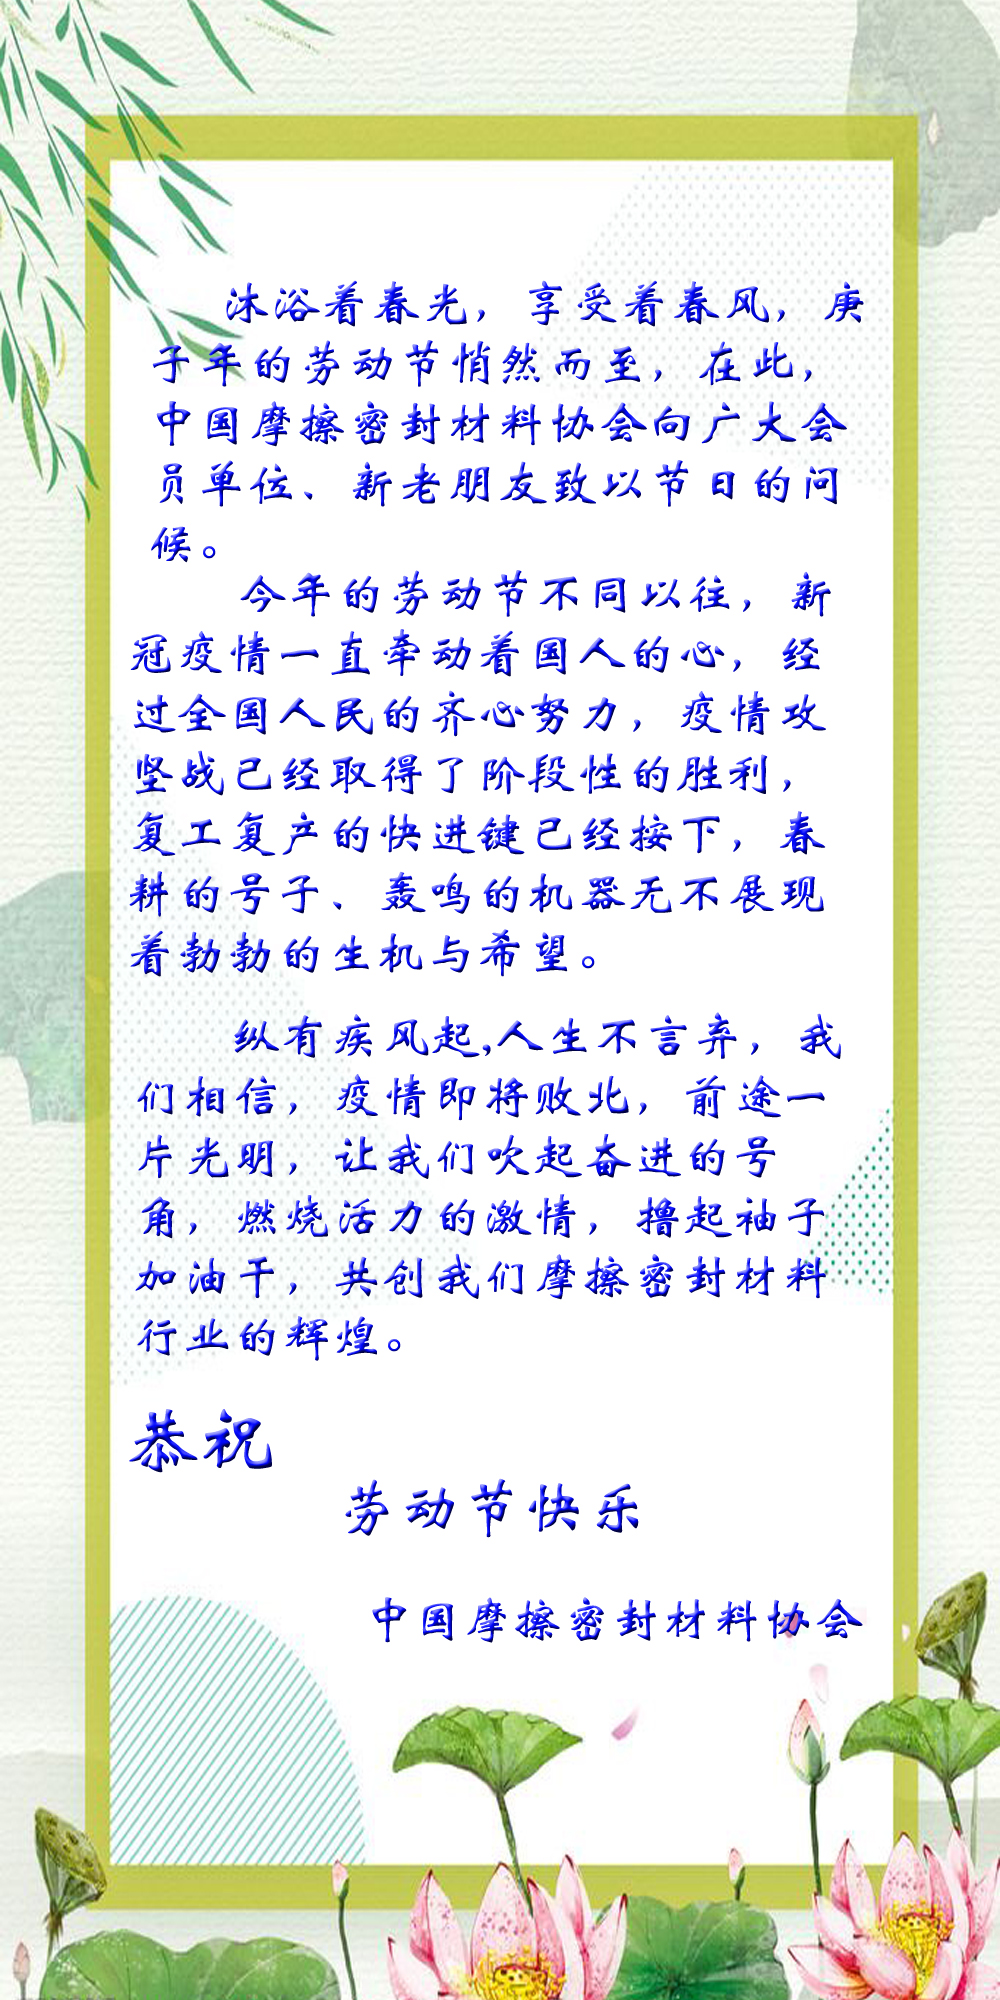 沐浴着春光，享受着春风，庚
子年的劳动节悄然而至，在此，
中国摩擦密封材料协会向广大会
员单位、新老朋友致以节日的问
候。
今年的劳动节不同以往，新
冠疫情一直牵动着国人的心，经
过全国人民的齐心努力，疫情攻
坚战已经取得了阶段性的胜利，
复工复产的快进键已经按下，春
耕的号子、轰鸣的机器无不展现
着勃勃的生机与希望。
纵有疾风起,人生不言弃，我
们相信，疫情即将败北，前途一
片光明，让我们吹起奋进的号
角，燃烧活力的激情，撸起袖子
加油干，共创我们摩擦密封材料
行业的辉煌。
恭祝
劳动节快乐
中国摩擦密封材料协会